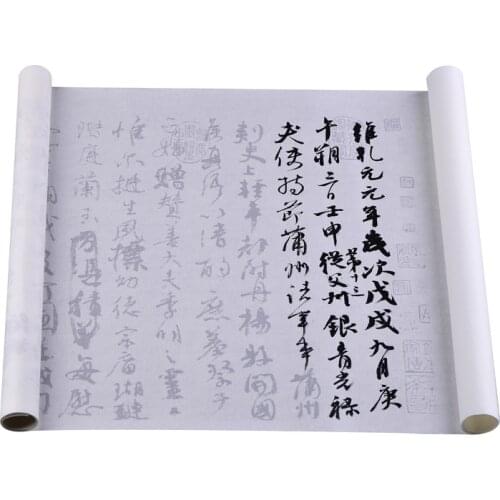 維乾元元年歲次戊戌九月庚
午朔三日壬申第十三從父叔銀青光祿
夫使持節蒲州諸軍事蒲州
刺史上輕車都尉丹楊縣開國
侯真卿以清酌庶羞祭于
亡姪贈贊善大夫季明之靈
惟爾挺生夙標幼德宗廟瑚璉
階庭蘭玉每慰